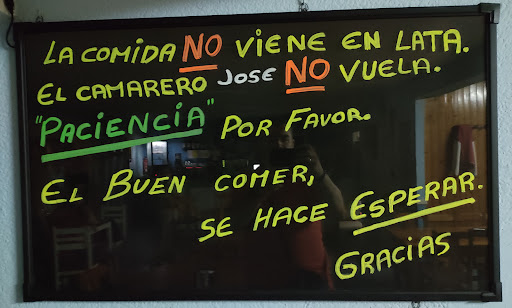 LA COMIDA NO VIENE EN LATA.
EL CAMARERO JOSE NO VUELA.
"PACIENCIA" POR FAVOR.
EL BUEN COMER,
SE HACE ESPERAR.
GRACIAS